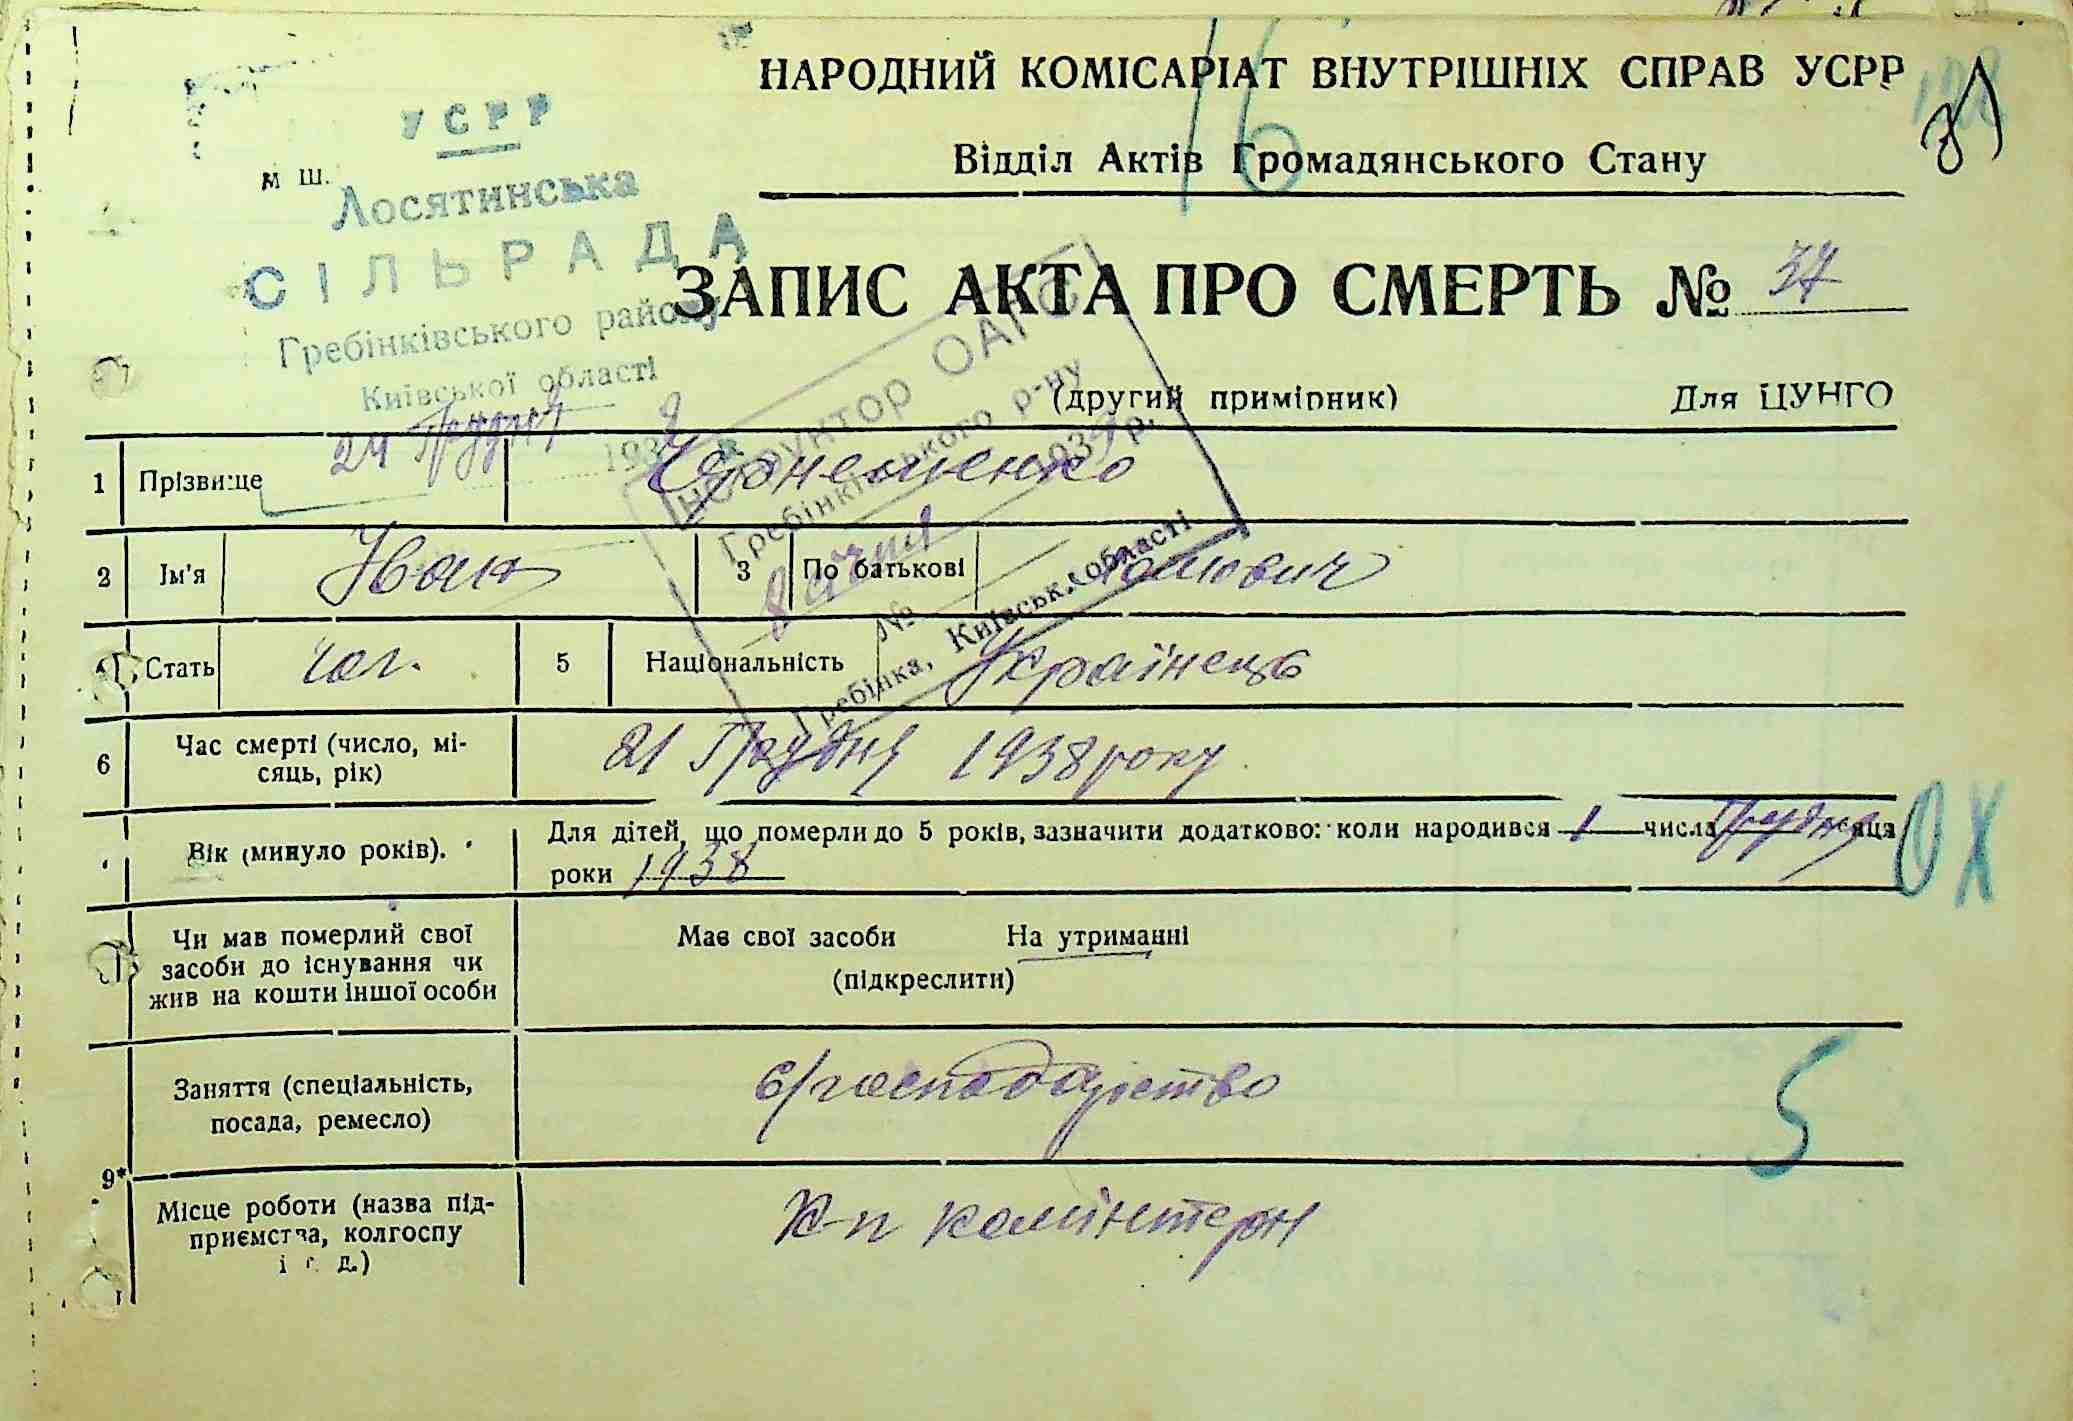 НАРОДНИЙ КОМІСАРІАТ ВНУТРІШНІХ СПРАВ УСРР
Відділ Актів Громадянського Стану
16
м ш.
УСРР
Лосятинська
СІЛЬРАДА
Гребінківського району
Київської області
24 Грудня 1938
ЗАПИС АКТА ПРО СМЕРТЬ № 37
(другий примірник) Для ЦУНГО
ІНСТРУКТОР ОАГС
Гребінківського р-ну
193 р.
№
Гребінка, Київськ. області
1 Прізвище
2 Ім'я Іван 3 По батькові
4 Стать чол. 5 Національність Українець
6 Час смерті (число, мі-
сяць, рік) 21 Грудня 1938 року
Вік (минуло років). Для дітей, що померли до 5 років, зазначити додатково: коли народився 1 числа Грудня сяця
роки 1938
0 X
Чи мав померлий свої
засоби до існування чи
жив на кошти іншої особи
Має свої засоби На утриманні
(підкреслити)
Заняття (спеціальність,
посада, ремесло) с/господарство
5
9*
Місце роботи (назва під-
приємства, колгоспу
і т. д.) К-п комінтерн